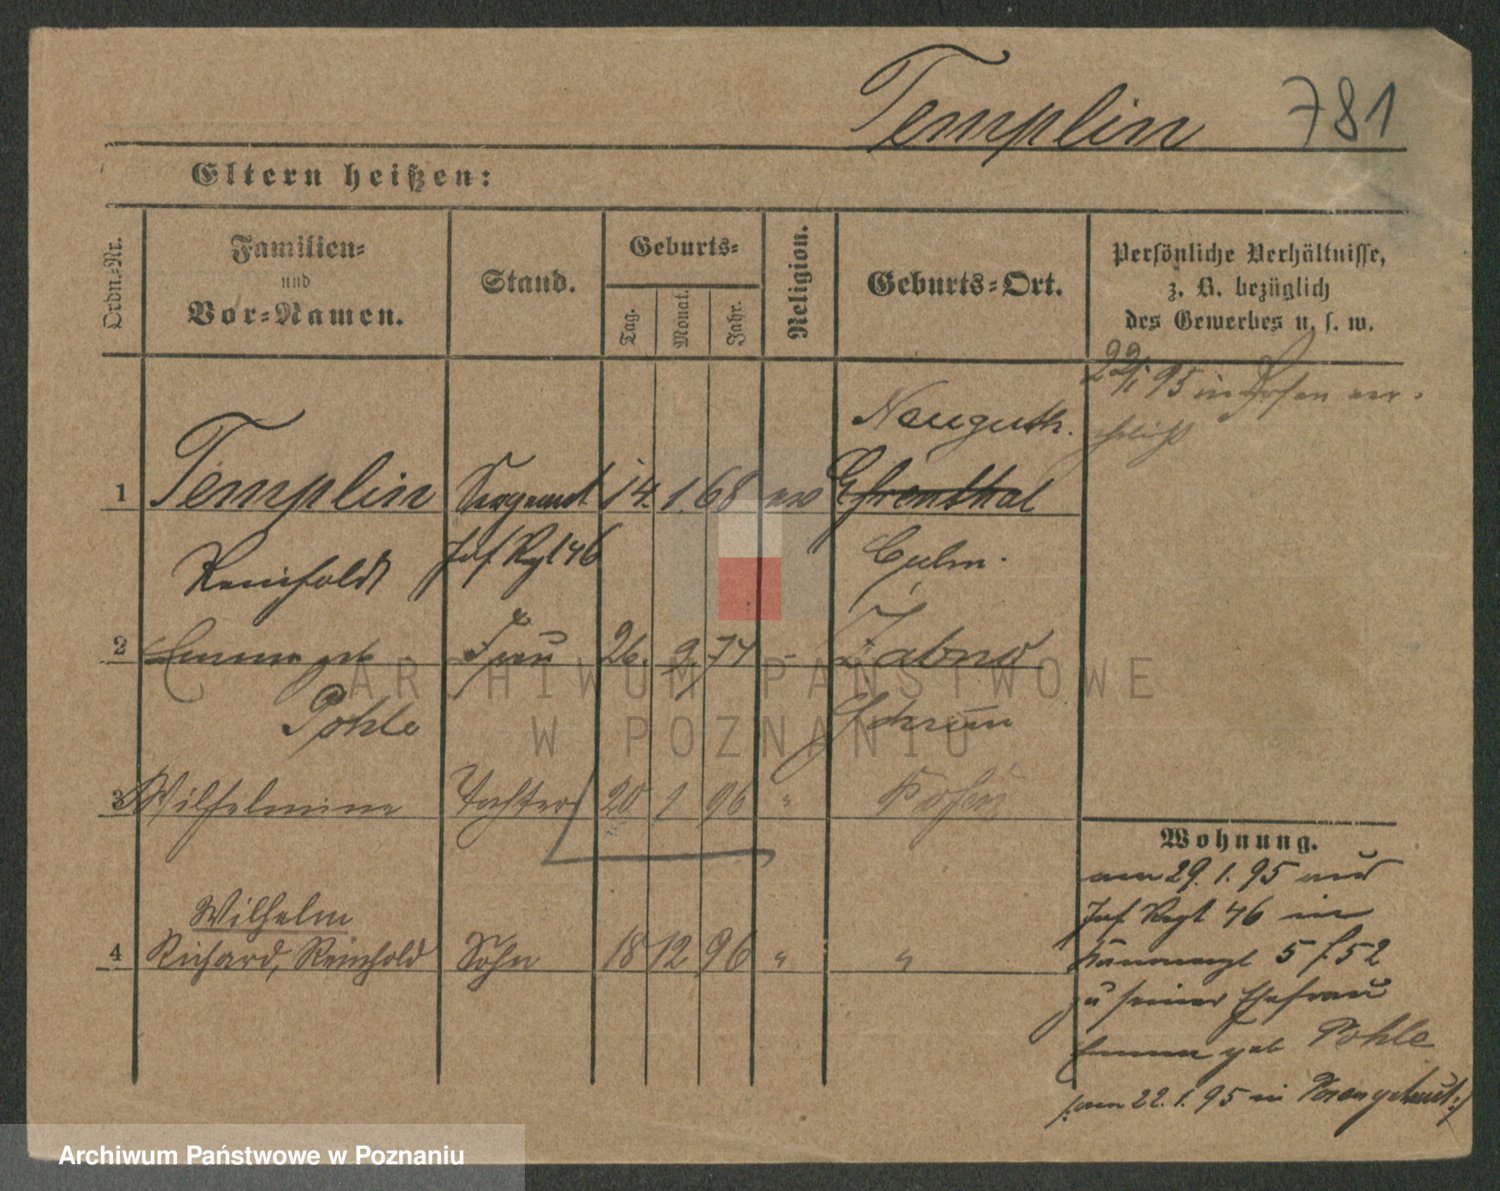 Templin 781
Eltern heißen:
Ordn.-Nr.
Familien-
und
Vor-Namen.
Stand.
Geburts-
Tag.
Monat.
Jahr.
Religion.
Geburts-Ort.
Persönliche Verhältnisse,
z. B. bezüglich
des Gewerbes u. s. w.
22/1 95 in Posen ver-
ehelicht
Neuguth.
1 Templin Sergeant 14. 1. 68 ev Ehrenthal
Reinhold Inf Rgt 46 Culm.
2 Emma geb Frau 26. 9. 74 - Zabno
Pohle Schrim
3 Wilhelmine Tochter 20 1 96 " Posen
Wilhelm
4 Richard, Reinhold Sohn 18 12 96 " "
Wohnung.
am 29. 1. 95 aus
Inf Regt 46 in
5 f. 52
zu seiner Ehefrau
Emma geb Pohle
/:am 22. 1. 95 in Posen getraut:/
ARCHIWUM PAŃSTWOWE
W POZNANIU
Archiwum Państwowe w Poznaniu